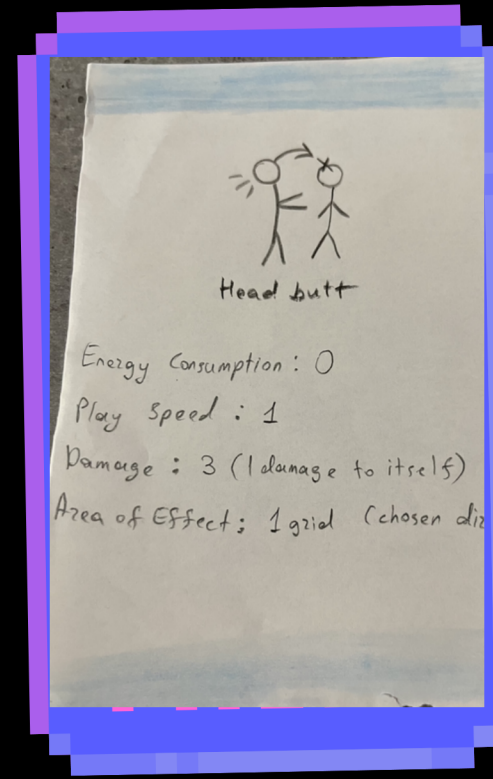 Head butt
Energy Consumption: 0
Play Speed: 1
Damage: 3 (1 damage to itself)
Area of Effect: 1 grid (chosen